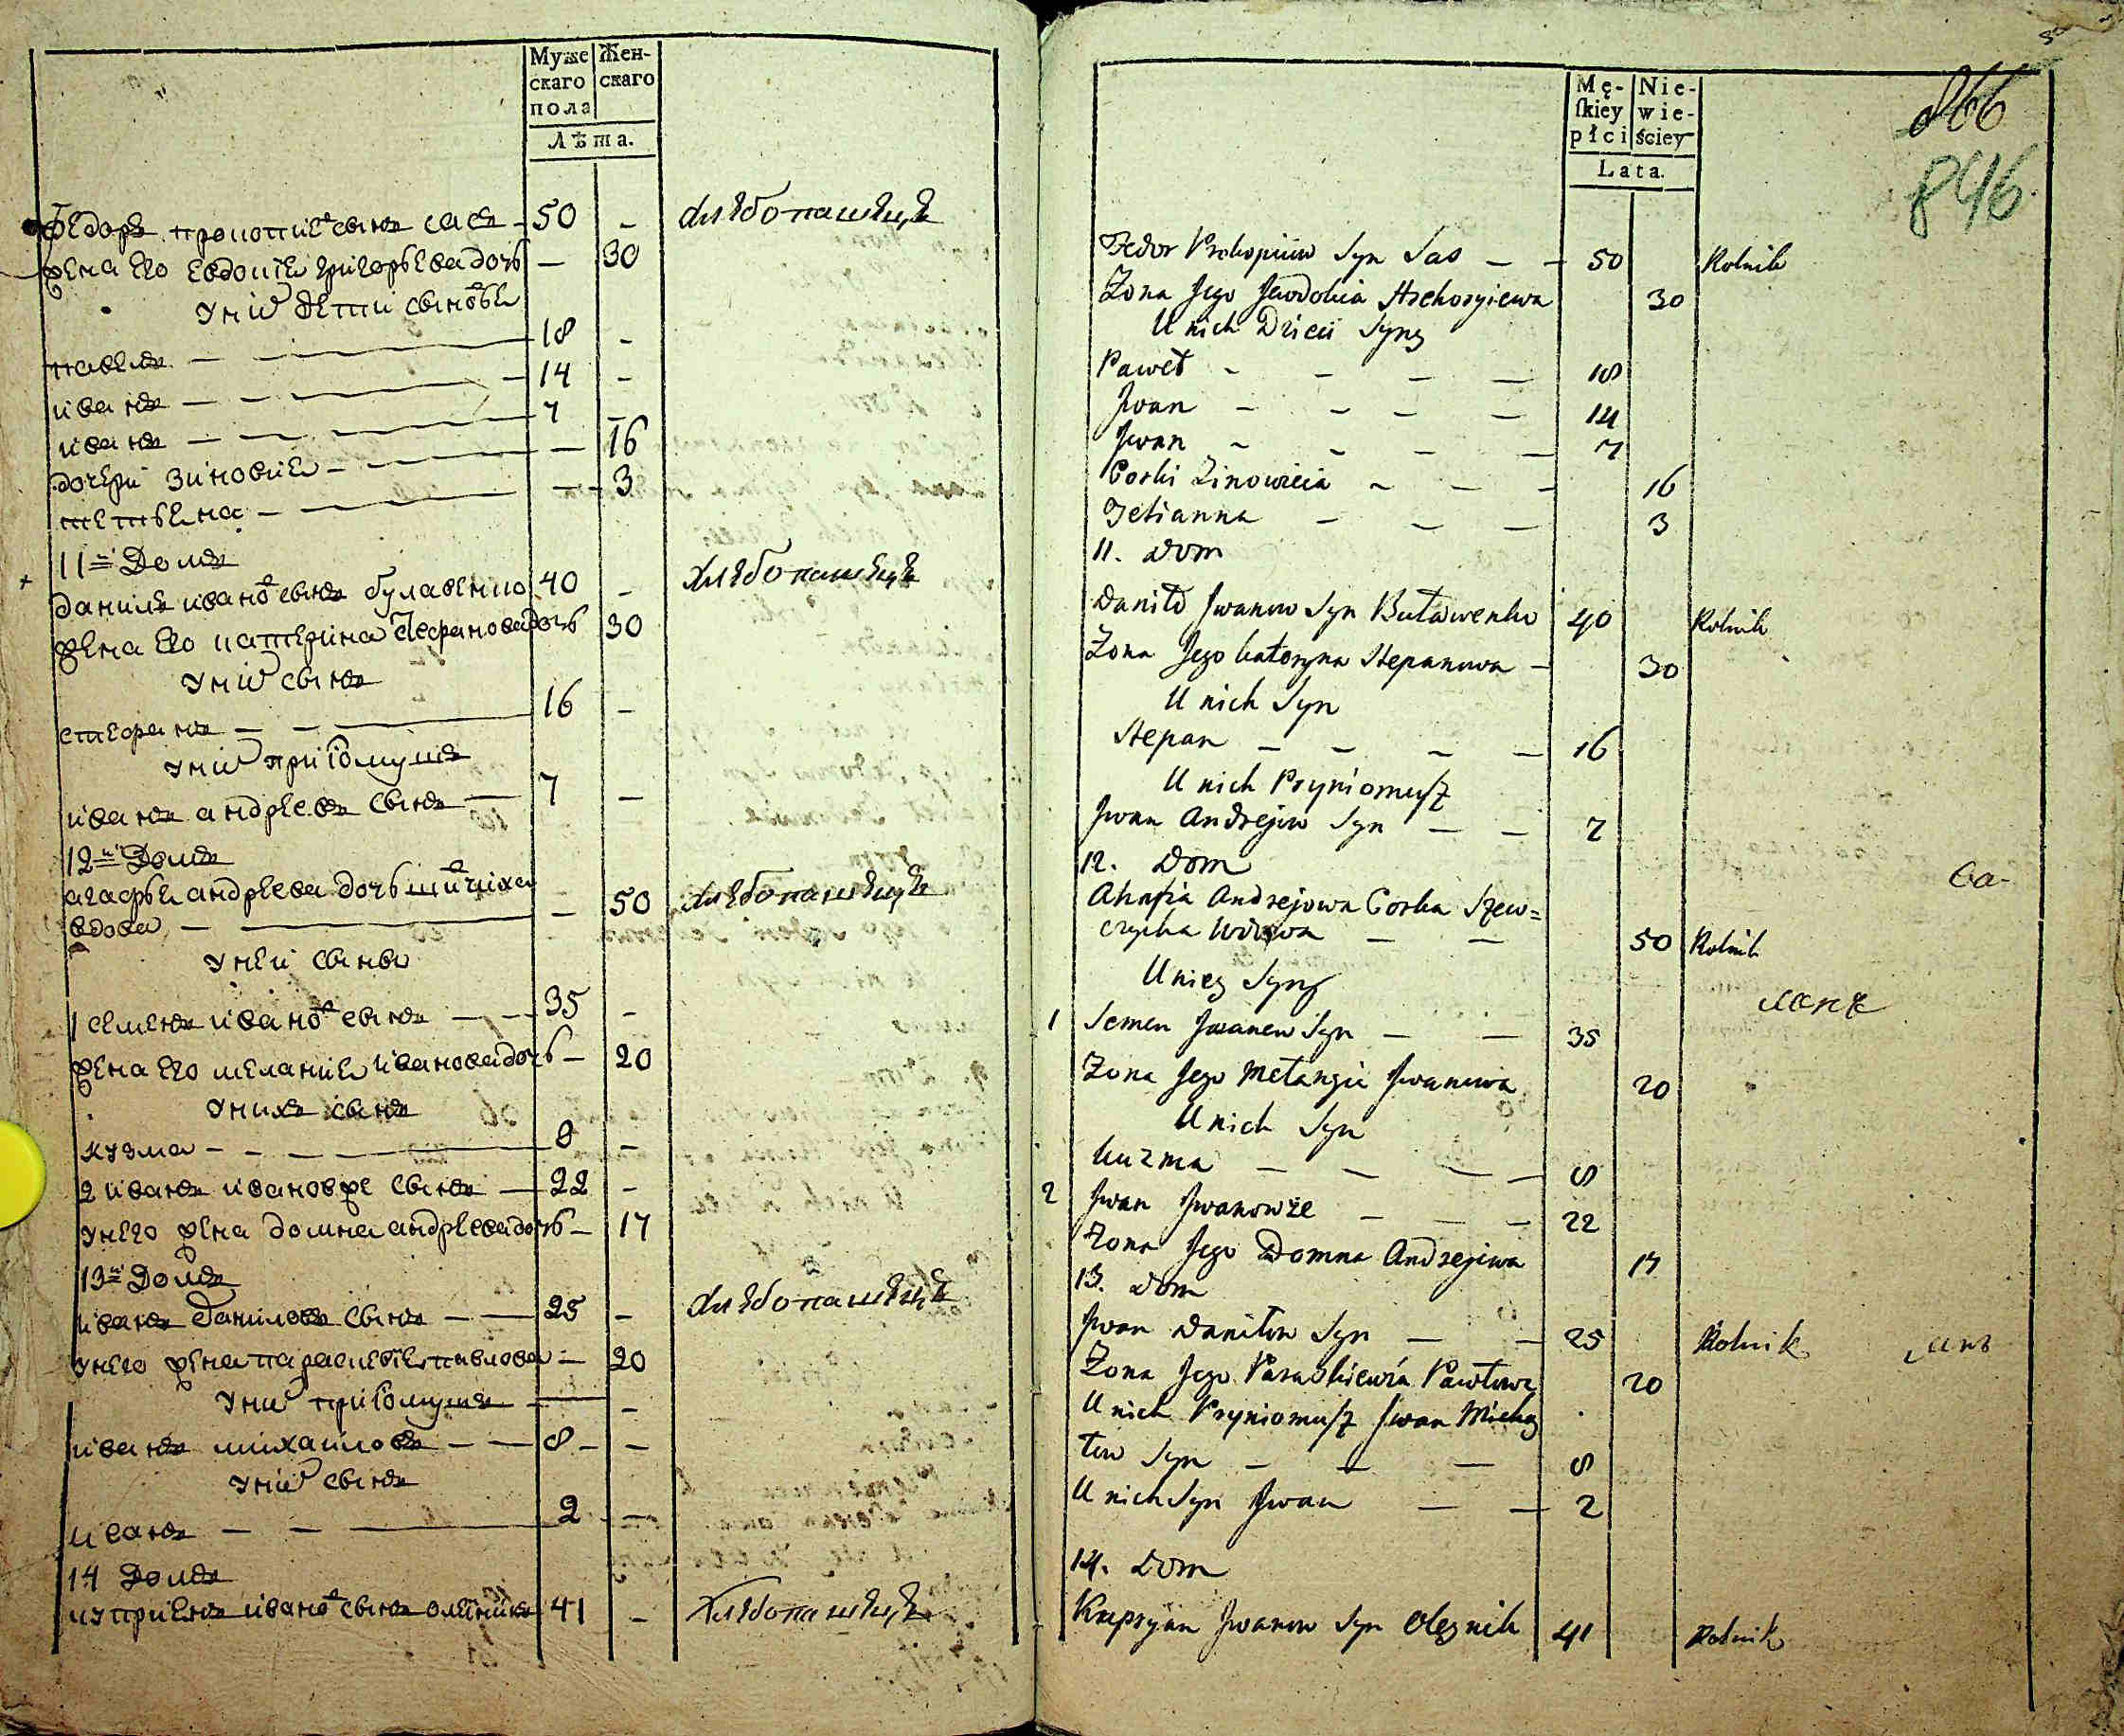 Муже Жен-
скаго скаго
пола
Лѣта.
Федоръ прокопиевъ сынъ сасъ - 50 - хлѣбопашецъ
жена его евдокия григорьева дочь - 30
у них дети сыновья
павелъ - - 18 -
иванъ - - - 14 -
иванъ - - - 7 -
дочери зиновия - - - 16
тетьяна - - - 3
11й Домъ
данила ивановъ сынъ булавенко 40 - хлѣбопашецъ
жена его катерина стефанова дочь 30
у них сынъ
стефанъ - - 16 -
у них приймушъ
иванъ андреевъ сынъ - 7 -
12й Домъ
агафья андреева дочь
вдова - - 50 хлѣбопашецъ
у ней сыны
1 семенъ ивановъ сынъ - - 35 -
жена его мелания иванова дочь - 20
у нихъ сынъ
кузма - - - 8 -
2 иванъ ивановже сынъ - 22 -
у него жена домна андреева дочь - 17
13й Домъ
иванъ даниловъ сынъ - - 25 - хлѣбопашецъ
у него жена параскевия павлова - 20
у них приймушъ - -
иванъ михайловъ - - 8 - -
у них сынъ
иванъ - - 2 -
14 Домъ
куприянъ ивановъ сынъ олѣйникъ 41 - хлѣбопашецъ
Mę- Nie-
ſkiey wie-
płci ściey
Lata.
866
846
Fedor Prokopiiw Syn Sas - - 50 Rolnik
Zona Jego Jewdokia Hrehoryiewa 30
U nich Dzieci Syny
Paweł - - - - 18
Jwan - - - - 14
Jwan - - - - 7
Corki Zinowiia - - - 16
Tetianna - - - 3
11. Dom
Daniło Jwanow Syn Buławenko 40 Rolnik
Zona Jego Katoryna Stepanowa - 30
U nich Syn
Stepan - - - - 16
U nich Pryniomuſz
Jwan Andrejow Syn - - 7
12. Dom
Ahafia Andrejowa Corka Szew=
czycha Wdowa - - 50 Rolnik
U niey Syny
1 Semen Jwanow Syn - - 35
Zona Jego Mełangia Jwanowa 20
U nich Syn
Kuzma - - - - 8
2 Jwan Jwanowże - - - 22
Zona Jego Domna Andrejiwa 17
13. Dom
Jwan Daniłow Syn - - 25 Rolnik
Zona Jego Paraskiewia Pawłowa 20
U nich Pryniomuſz Jwan Micha
łow Syn - - - 8
U nich Syn Jwan - - 2
14. Dom
Kupryan Jwanow Syn Oleynik 41 Rolnik